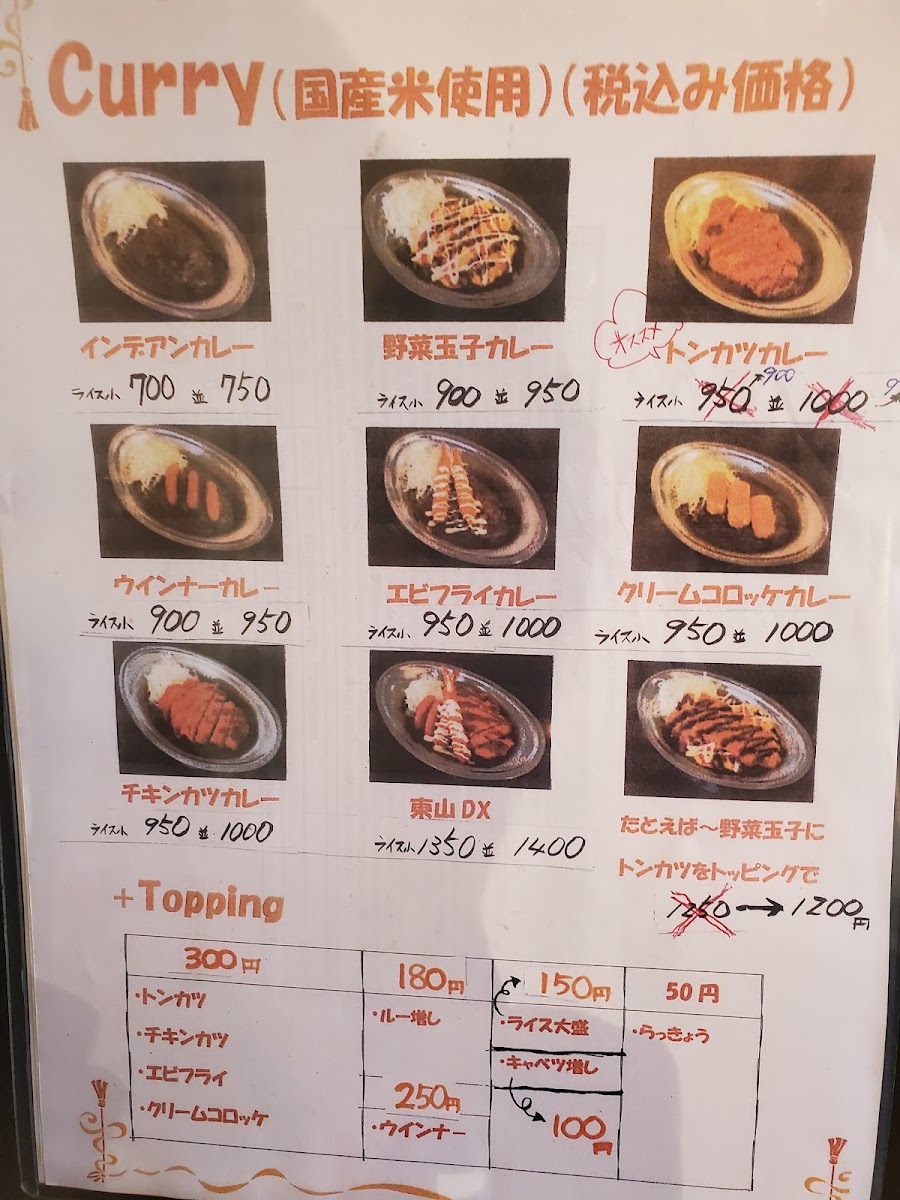 Curry(国産米使用)(税込み価格)
インデアンカレー
ライス小 700 並 750
野菜玉子カレー
ライス小 900 並 950
オススメ
トンカツカレー
ライス小 950 →900 並 1000
ウインナーカレー
ライス小 900 並 950
エビフライカレー
ライス小 950 並 1000
クリームコロッケカレー
ライス小 950 並 1000
チキンカツカレー
ライス小 950 並 1000
東山 DX
ライス小 1350 並 1400
たとえば〜野菜玉子に
トンカツをトッピングで
1250→1200円
+Topping
300円
・トンカツ
・チキンカツ
・エビフライ
・クリームコロッケ
180円
・ルー増し
250円
・ウインナー
150円
・ライス大盛
・キャベツ増し
100円
50円
・らっきょう